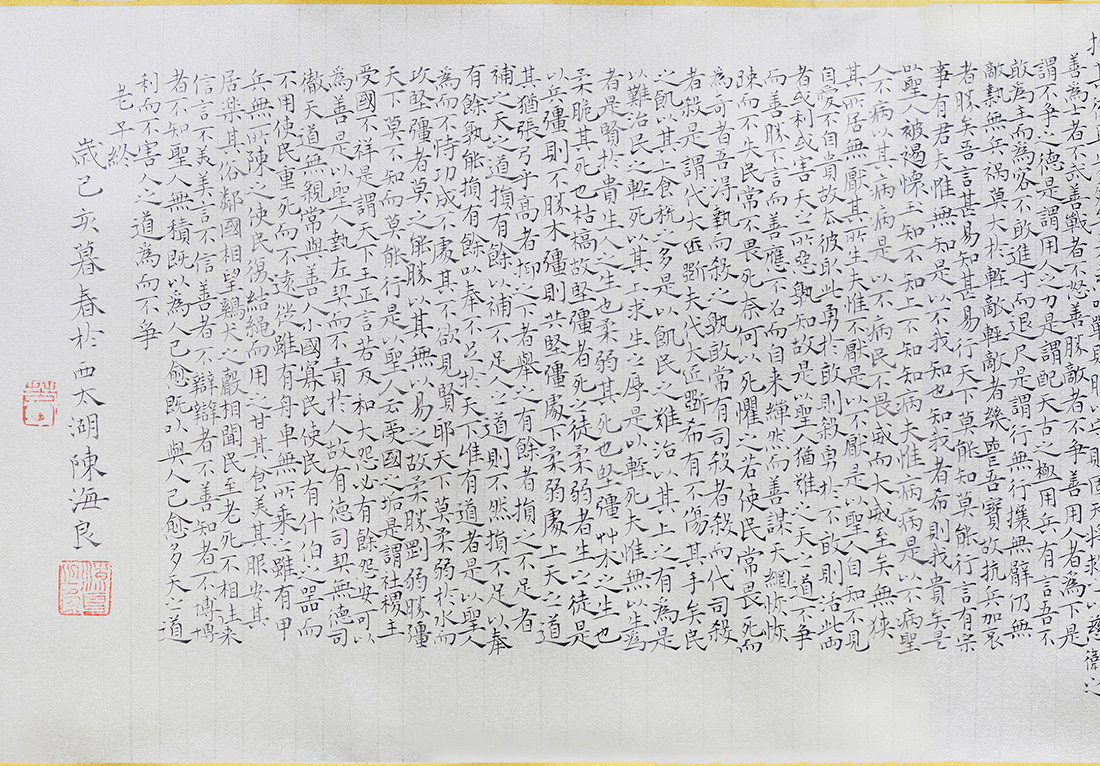 衛之
善為士者不武善戰者不怒善勝敵者不爭善用人者為下是
謂不爭之德是謂用人之力是謂配天古之極用兵有言吾不
敢為主而為客不敢進寸而退尺是謂行無行攘無臂仍無
敵執無兵禍莫大於輕敵輕敵者幾喪吾寶故抗兵加哀
者勝矣吾言甚易知甚易行天下莫能知莫能行言有宗
事有君夫惟無知是以不我知也知我者希則我貴矣是
以聖人被褐懷玉知不知上不知知病夫惟病病是以不病聖
人不病以其病病是以不病民不畏威而大威至矣無狹
其所居無厭其所生夫惟不厭是以不厭是以聖人自知不見
自愛不自貴故去彼取此勇於敢則殺勇於不敢則活此兩
者或利或害天之所惡孰知故是以聖人猶難之天之道不爭
而善勝不言而善應不召而自来繟然而善謀天網恢恢
踈而不失民常不畏死奈何以死懼之若使民常畏死而
為奇者吾得執而殺之孰敢常有司殺者殺而代司殺
者殺是謂代大匠斲夫代大匠斲希有不傷其手矣民
之飢以其上食税之多是以飢民之難治以其上之有為是
以難治民之輕死以其上求生之厚是以輕死夫惟無以生為
者是賢於貴生人之生也柔弱其死也堅彊艸木之生也
柔脆其死也枯槁故堅彊者死之徒柔弱者生之徒是
以兵彊則不勝木彊則共堅彊處下柔弱處上天之道
其猶張弓乎高者抑之下者舉之有餘者損之不足者
補之天之道損有餘以補不足人之道則不然損不足以奉
有餘孰能損有餘以奉不足於天下唯有道者是以聖人
為而不恃功成不處其不欲見賢耶天下莫柔弱於水而
攻堅彊者莫之能勝以其無以易之故柔勝剛弱勝彊
天下莫不知而莫能行是以聖人云受國之垢是謂社稷主
受國不祥是謂天下王正言若反和大怨必有餘怨安可以
為善是以聖人執左契而不責於人故有德司契無德司
徹天道無親常與善人小國寡民使民有什伯之器而
不用使民重死而不遠徙雖有舟車無所乘之雖有甲
兵無所陳之使民復結繩而用之甘其食美其服安其
居樂其俗鄰國相望鷄犬之聲相聞民至老死不相往来
信言不美美言不信善者不辯辯者不善知者不博博
者不知聖人無積既以為人已愈既以與人已愈多天之道
利而不害人之道為而不爭
老子終
歲己亥暮春於西太湖陳海良